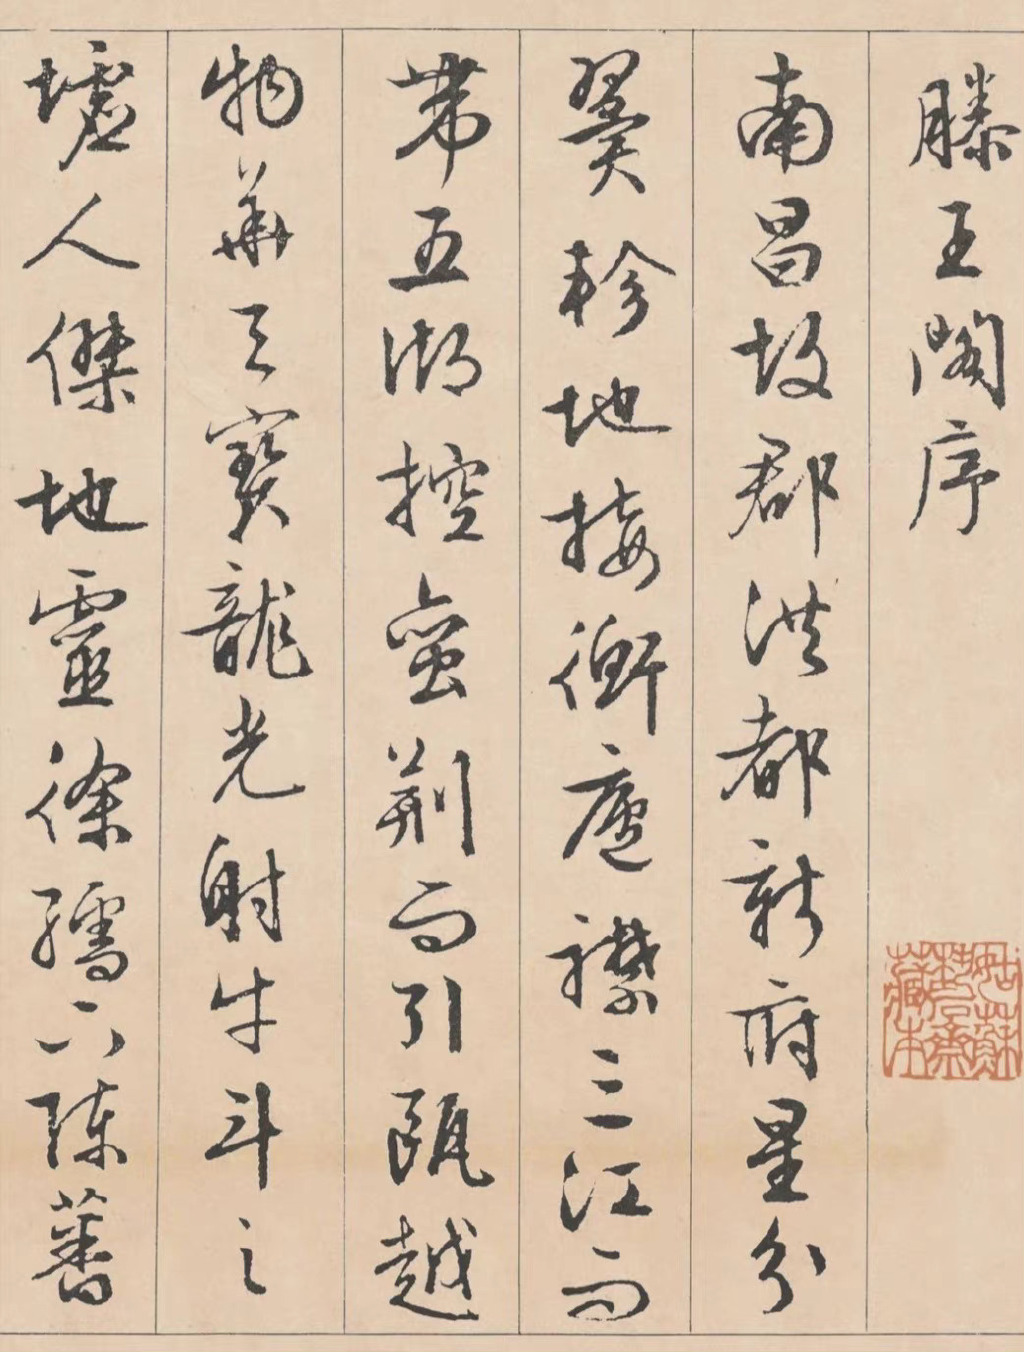 滕王閣序
南昌故郡洪都新府星分
翼軫地接衡廬襟三江而
帶五湖控蠻荆而引甌越
物華天寶龍光射牛斗之
墟人傑地靈徐孺下陳蕃
姑蘇
藏本